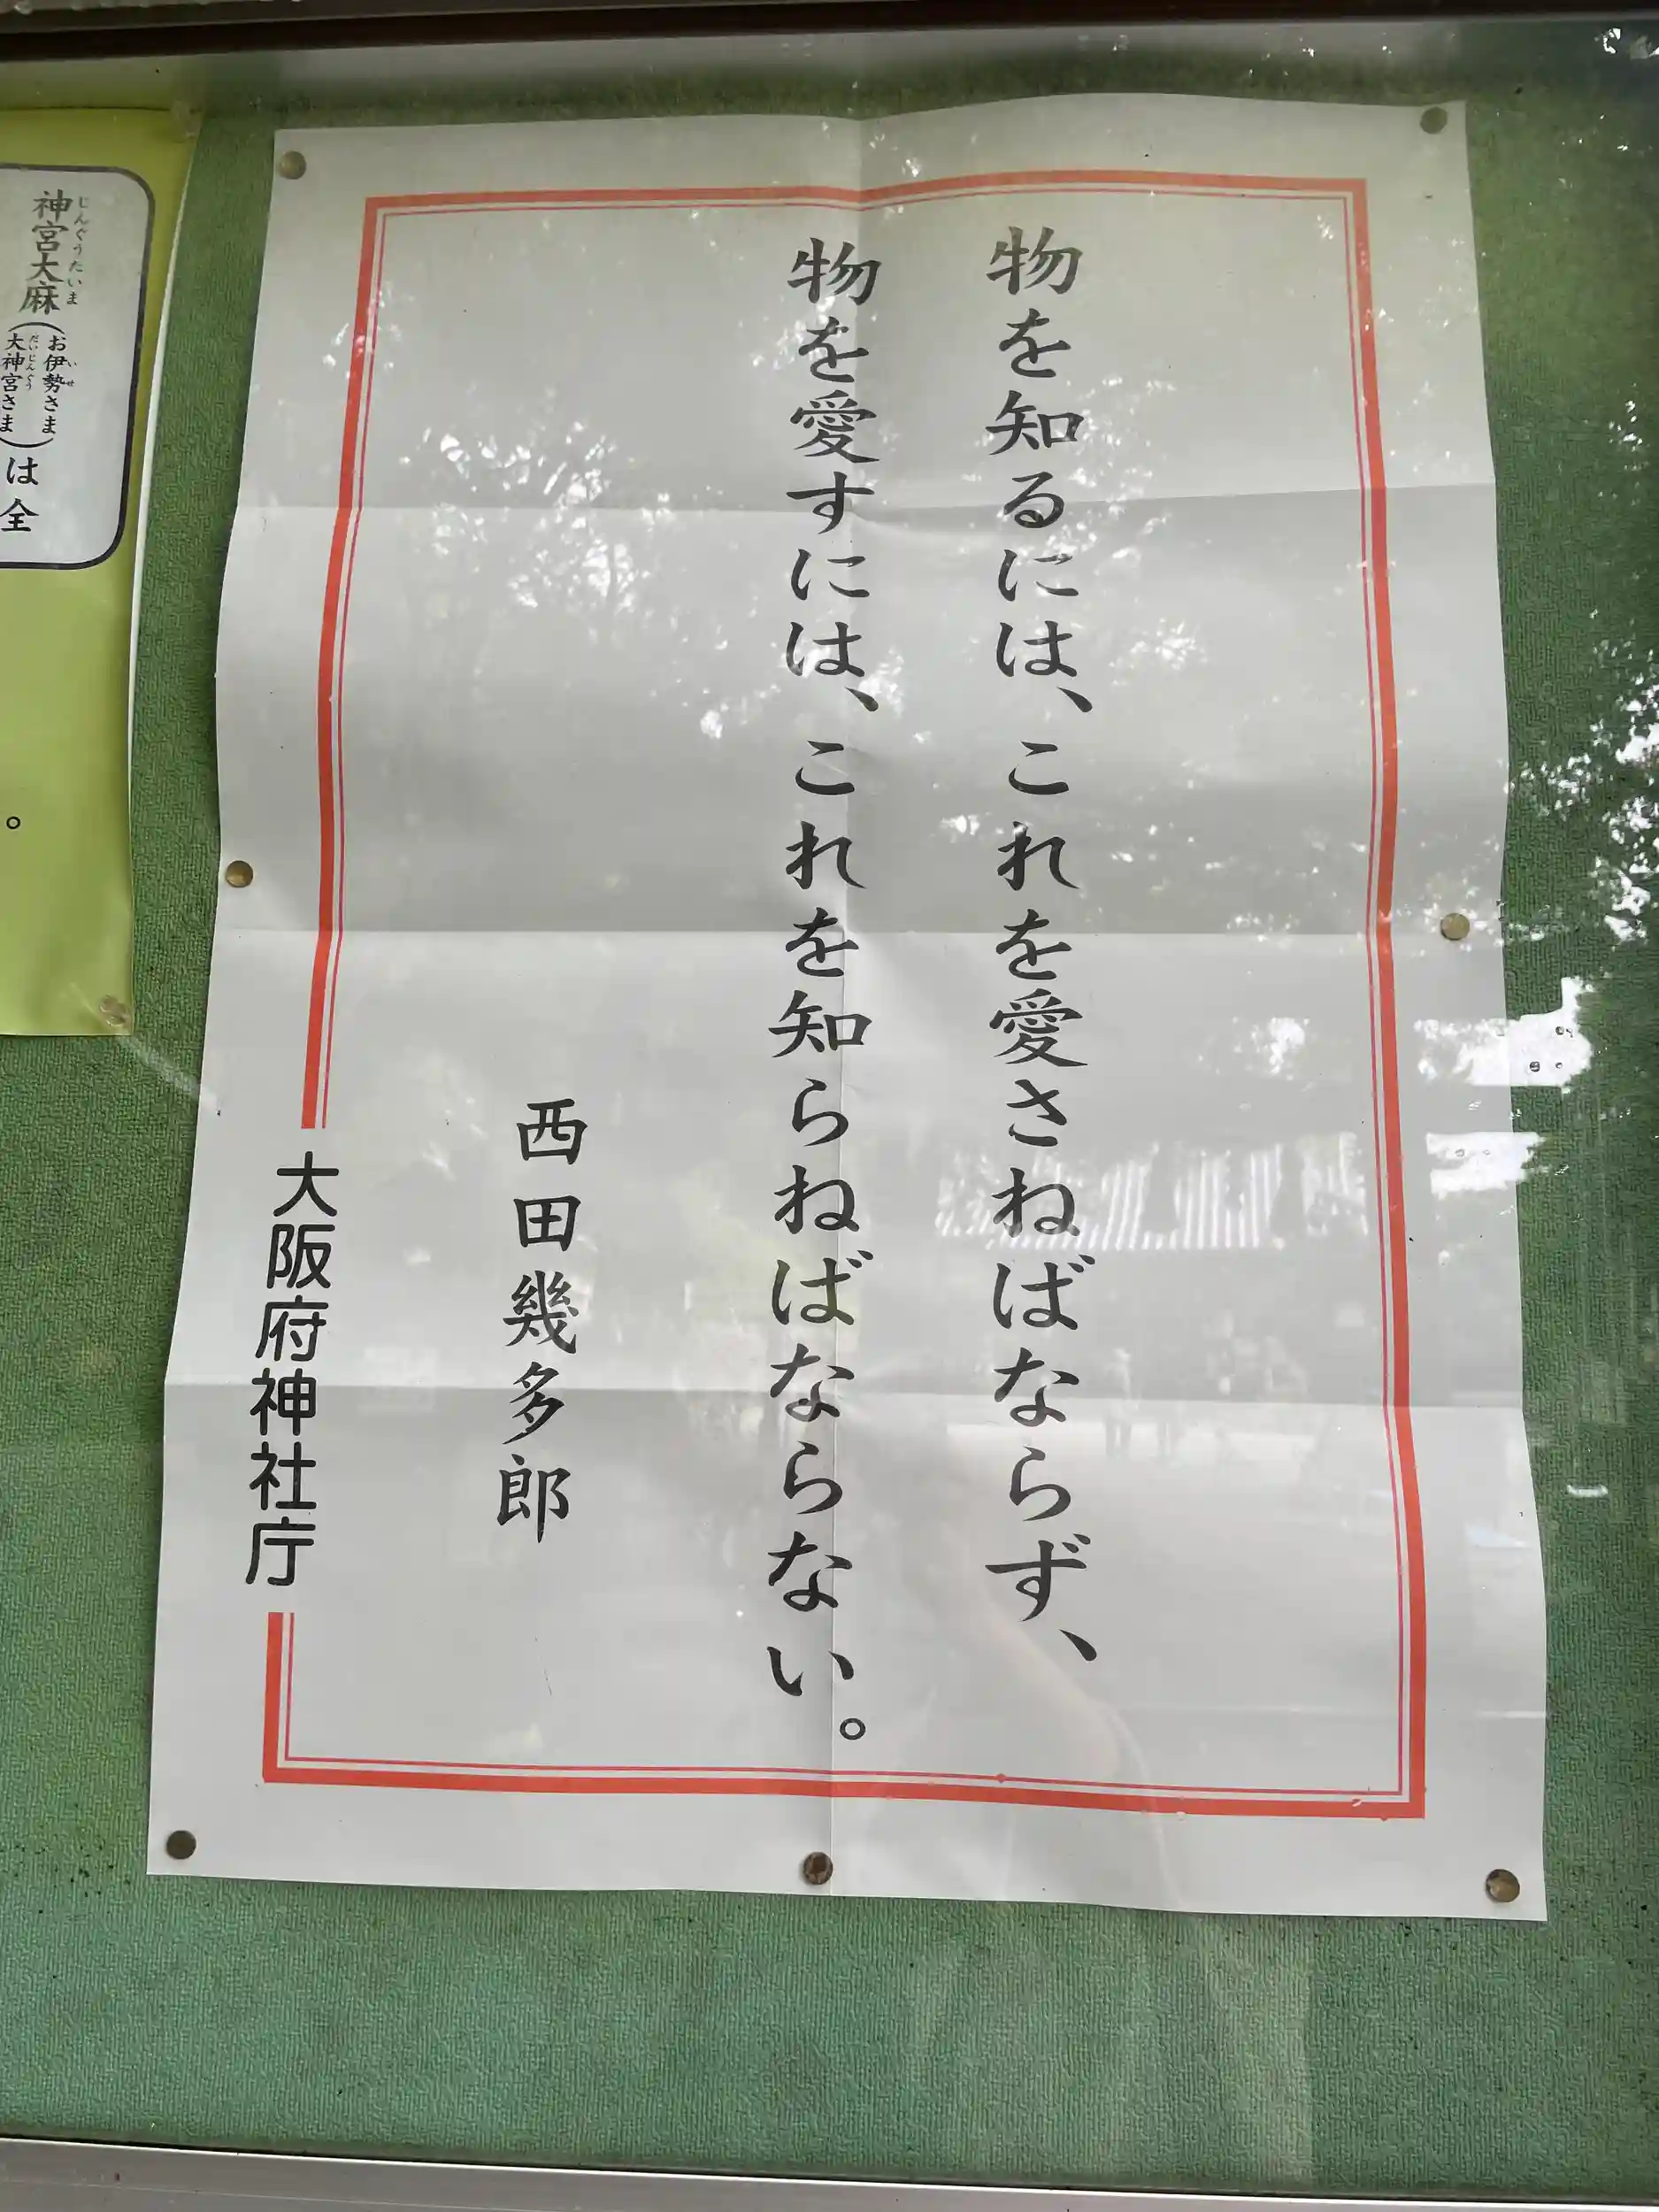 物を知るには、これを愛さねばならず、
物を愛すには、これを知らねばならない。
西田幾多郎
大阪府神社庁
神宮大麻
じんぐうたいま
(お伊勢さま
いせ
大神宮さま)
だいじんぐう
は全
。